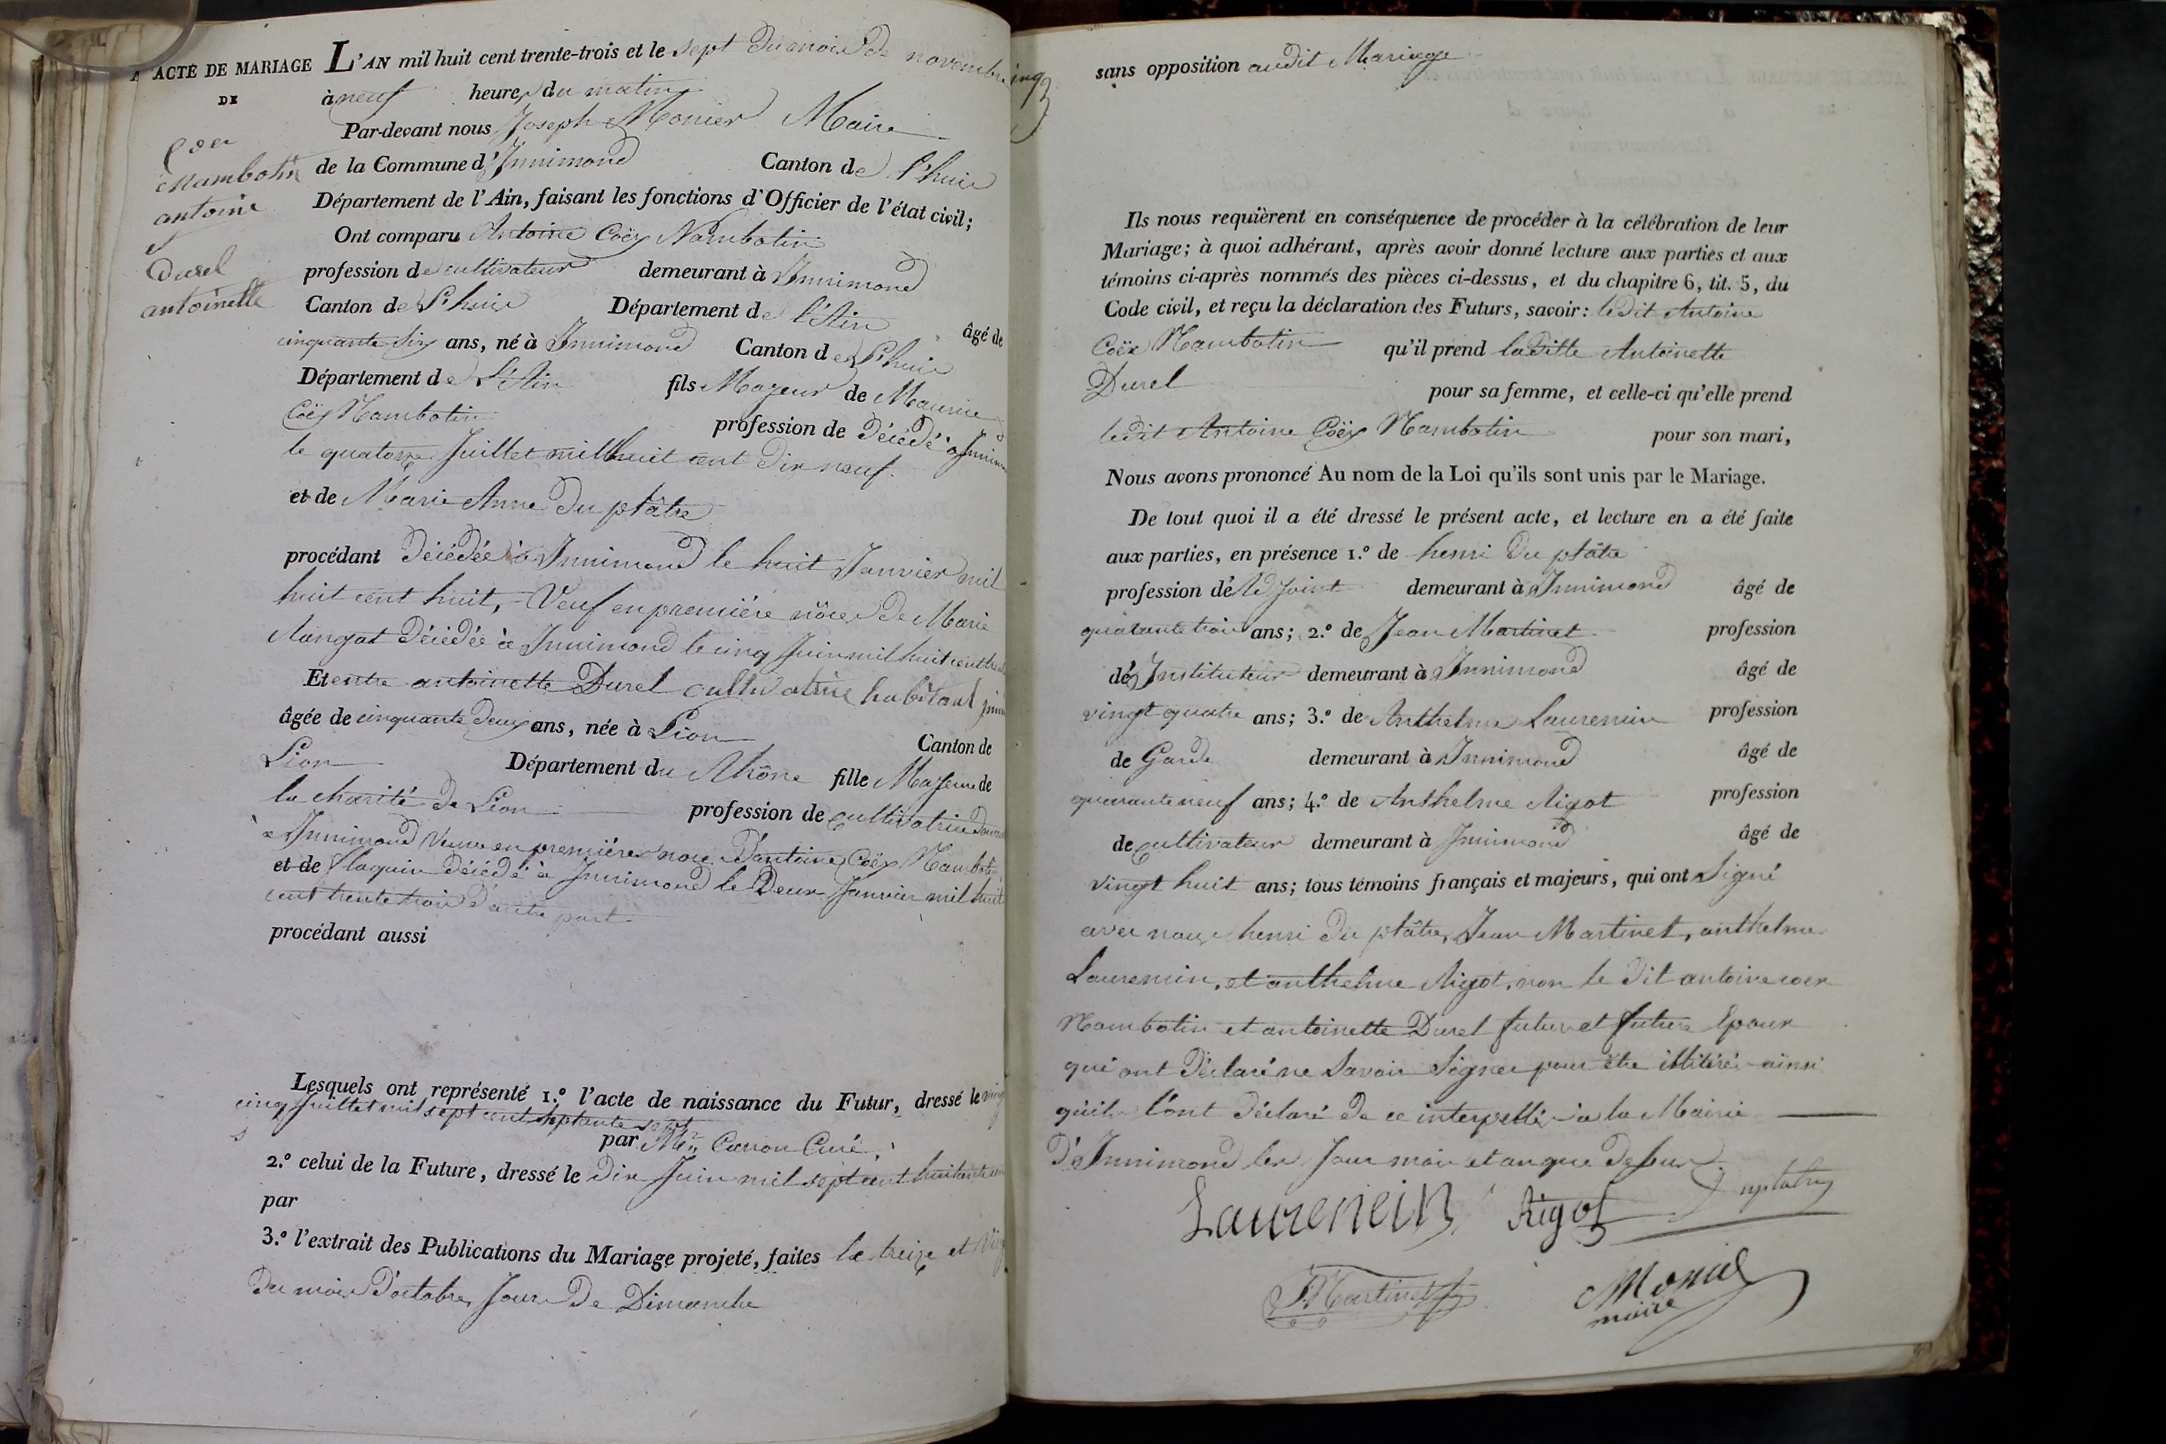 ACTE DE MARIAGE
DE
Coex
Nambotin
antoine
&
Durel
antoinette
L'AN mil huit cent trente-trois et le sept du mois de novembre
à neuf heures du matin
Par-devant nous Joseph Monier Maire
de la Commune d'Innimond Canton de L'huis
Département de l'Ain, faisant les fonctions d'Officier de l'état civil;
Ont comparu Antoine Coëx Nambotin
profession de cultivateur demeurant à Innimond
Canton de L'huis Département de l'Ain âgé de
cinquante six ans, né à Innimond Canton de L'huis
Département de L'Ain fils Majeur de Maurice
Coëx Nambotin profession de décédé à
le quatorze Juillet mil huit cent dix neuf.
et de Marie Anne Du plâtre
procédant décédée à Innimond le huit Janvier mil
huit cent huit, Veuf en première nôces de Marie
décédée à Innimond le cinq Juin mil huit cent
Et entre antoinette Durel cultivatrice habitant
âgée de cinquante deux ans, née à Lion Canton de
Lion Département du Rhône fille Majeure de
la charité de Lion profession de cultivatrice
à Innimond Veuve en premières noce d'antoine Coëx
et de décédé à Innimond le Deux Janvier mil huit
cent trente trois d'autre part
procédant aussi
Lesquels ont représenté 1.º l'acte de naissance du Futur, dressé le
cinq Juillet mil sept cent septante sept
par Mr Carron Curé,
2.º celui de la Future, dressé le dix Juin mil sept cent
par
3.º l'extrait des Publications du Mariage projeté, faites le treize et
du mois d'octobre Jours De Dimanche
sans opposition audit Mariage
Ils nous requièrent en conséquence de procéder à la célébration de leur
Mariage; à quoi adhérant, après avoir donné lecture aux parties et aux
témoins ci-après nommés des pièces ci-dessus, et du chapitre 6, tit. 5, du
Code civil, et reçu la déclaration des Futurs, savoir: ledit Antoine
Coëx Nambotin qu'il prend laditte Antoinette
Durel pour sa femme, et celle-ci qu'elle prend
ledit Antoine Coëx Nambotin pour son mari,
Nous avons prononcé Au nom de la Loi qu'ils sont unis par le Mariage.
De tout quoi il a été dressé le présent acte, et lecture en a été faite
aux parties, en présence 1.º de henri Du plâtre
profession d'Adjoint demeurant à Innimond âgé de
quarante trois ans; 2.º de Jean Martinet profession
d'Instituteur demeurant à Innimond âgé de
vingt quatre ans; 3.º de Anthelme Laurencin profession
de Garde demeurant à Innimond âgé de
quarante neuf ans; 4.º de Anthelme Rigot profession
de cultivateur demeurant à Innimond âgé de
vingt huit ans; tous témoins français et majeurs, qui ont Signé
avec nous, henri du plâtre, Jean Martinet, anthelme
Laurencin, et anthelme Rigot, non le dit antoine coex
Nambotin et antoinette Durel futur et future Epoux
qui ont déclaré ne savoir Signer pour être illitéré ainsi
qu'il l'ont déclaré de ce interpellé à la Mairie
d'Innimond les Jour mois et an que dessus
Laurencin Rigot Duplatre
J Martinet Monier
maire